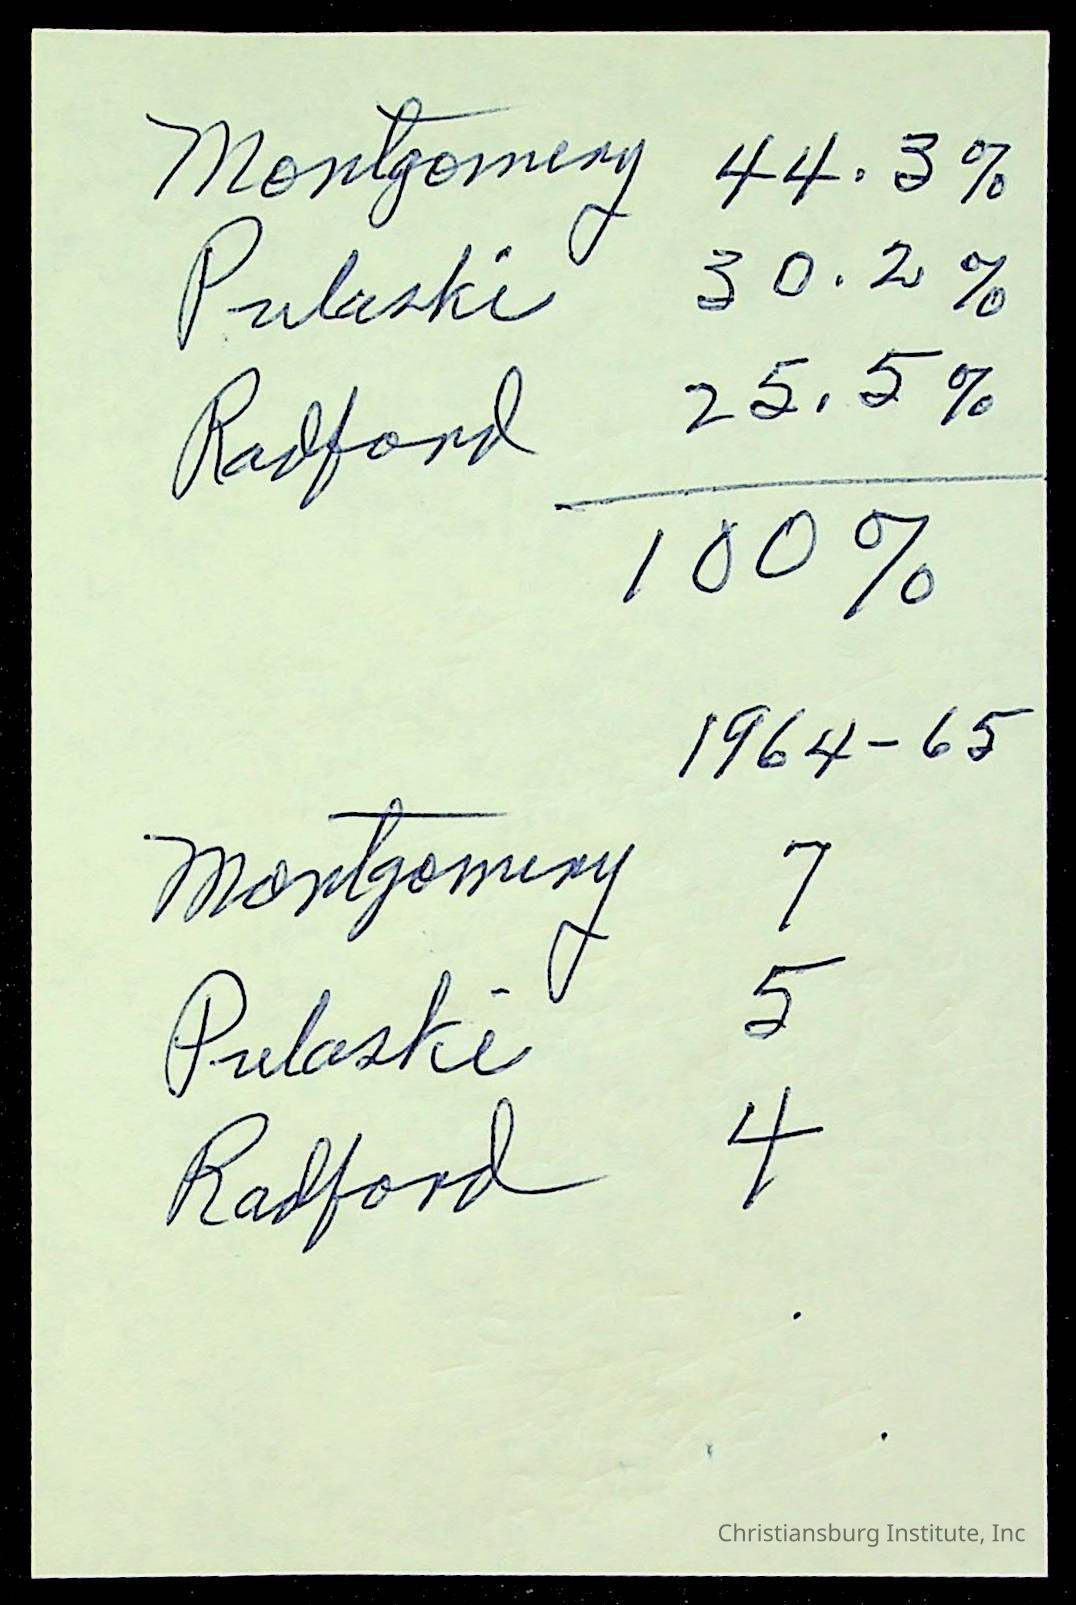 Montgomery 44.3%
Pulaski 30.2%
Radford 25.5%
100%
1964-65
Montgomery 7
Pulaski 5
Radford 4
Christiansburg Institute, Inc